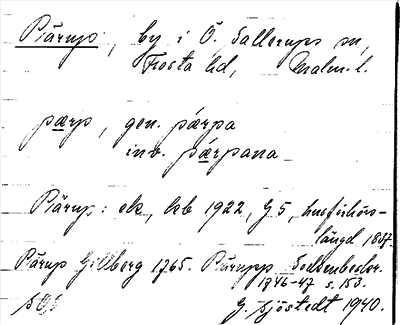 Pärup, by i Ö. Sallerups sn,
Frosta hd, Malm. l.
pærp, gen. pærpa
inv. pærpana
Pärup: ek, krb 1922, G 5, husförhörs-
längd 1837.
Pärup Gillberg 1765. Pärupp Sockenbeskr.
1746-47 s. 153.
G. Sjöstedt 1940.